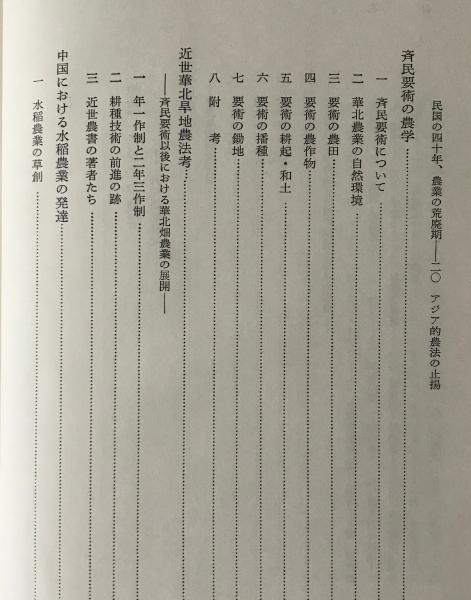 民国の四十年、農業の荒廃期——二〇 アジア的農法の止揚
斉民要術の農学
一 斉民要術について
二 華北農業の自然環境
三 要術の農田
四 要術の農作物
五 要術の耕起・和土
六 要術の播種
七 要術の鋤地
八 附考
近世華北旱地農法考
——斉民要術以後における華北畑農業の展開——
一 年一作制と二年三作制
二 耕種技術の前進の跡
三 近世農書の著者たち
中国における水稲農業の発達
一 水稲農業の草創